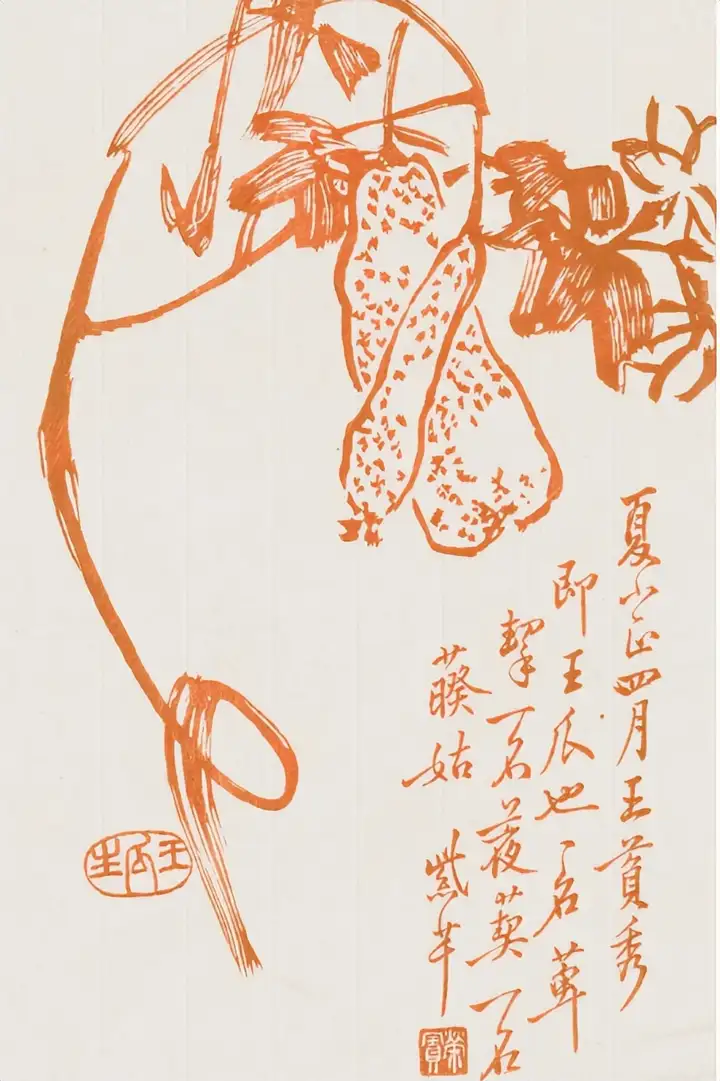 夏小正四月王萯秀
即王瓜也一名萆
挈一名菝葜一名
藈姑
紫芊
榮寶
王瓜生